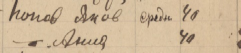 Попов Яков средн 40
— " — Анна 40